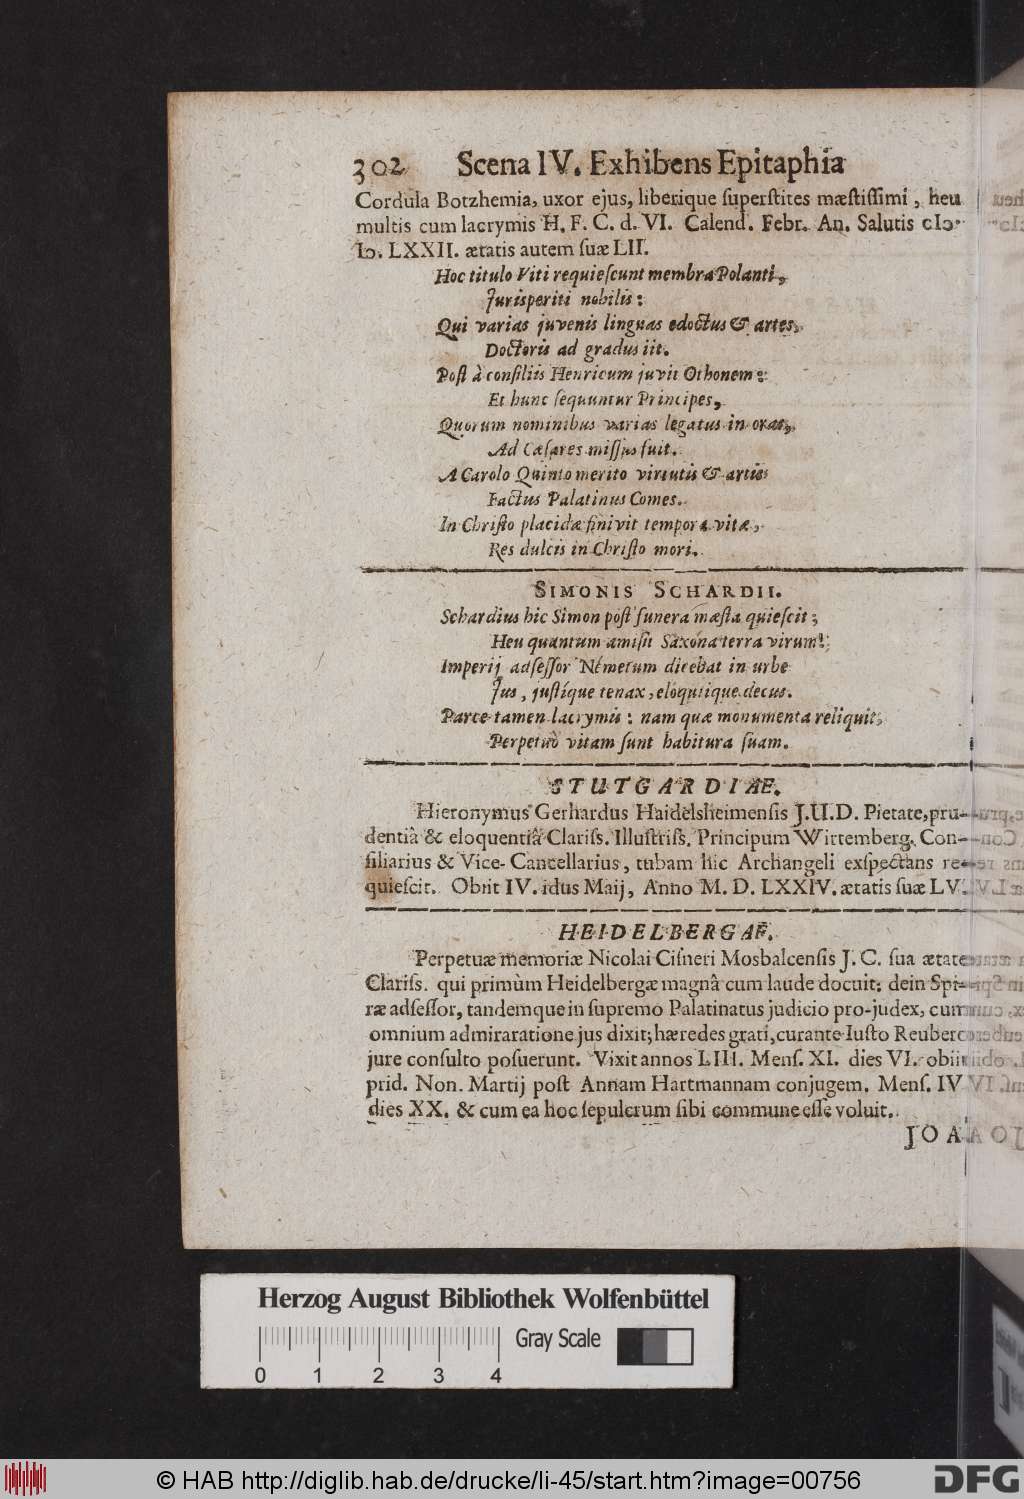 302 Scena IV. Exhibens Epitaphia
Cordula Botzhemia, uxor ejus, liberique ſuperſtites mæſtiſſimi, heu
multis cum lacrymis H. F. C. d. VI. Calend. Febr. An. Salutis cIɔ
Iɔ. LXXII. ætatis autem ſuæ LII.
Hoc titulo Viti requieſcunt membra Polanti,
Jurisperiti nobilis:
Qui varias juvenis linguas edoctus & artes,
Doctoris ad gradus iit.
Poſt à conſiliis Henricum juvit Othonem:
Et hunc ſequuntur Principes,
Quorum nominibus varias legatus in oras,
Ad Cæſares miſſus fuit.
A Carolo Quinto merito virtutis & artis
Factus Palatinus Comes.
In Chriſto placidæ finivit tempora vitæ,
Res dulcis in Chriſto mori.
SIMONIS SCHARDII.
Schardius hic Simon poſt funera mæſta quieſcit;
Heu quantum amiſit Saxona terra virum!
Imperij adſeſſor Németum dicebat in urbe
Jus, juſtíque tenax, eloquiique decus.
Parce tamen lacrymis: nam quæ monumenta reliquit,
Perpetuò vitam ſunt habitura ſuam.
STUTGARDIÆ.
Hieronymus Gerhardus Haidelsheimenſis J.U.D. Pietate, pru-
dentiâ & eloquentiâ Clariſs. Illuſtriſs. Principum Wirtemberg. Con-
ſiliarius & Vice-Cancellarius, tubam hic Archangeli exſpectans re-
quieſcit. Obiit IV. idus Maij, Anno M. D. LXXIV. ætatis ſuæ LV.
HEIDELBERGÆ.
Perpetuæ memoriæ Nicolai Ciſneri Mosbalcenſis J. C. ſua ætate
Clariſs. qui primùm Heidelbergæ magnâ cum laude docuit; dein Spi-
ræ adſeſſor, tandemque in ſupremo Palatinatus judicio pro-judex, cum
omnium admiraratione jus dixit; hæredes grati, curante Iuſto Reubero
jure conſulto poſuerunt. Vixit annos LIII. Menſ. XI. dies VI. obiit
prid. Non. Martij poſt Annam Hartmannam conjugem. Menſ. IV
dies XX. & cum ea hoc ſepulcrum ſibi commune eſſe voluit.
JOA
Herzog August Bibliothek Wolfenbüttel
Gray Scale
0 1 2 3 4
© HAB http://diglib.hab.de/drucke/li-45/start.htm?image=00756
DFG